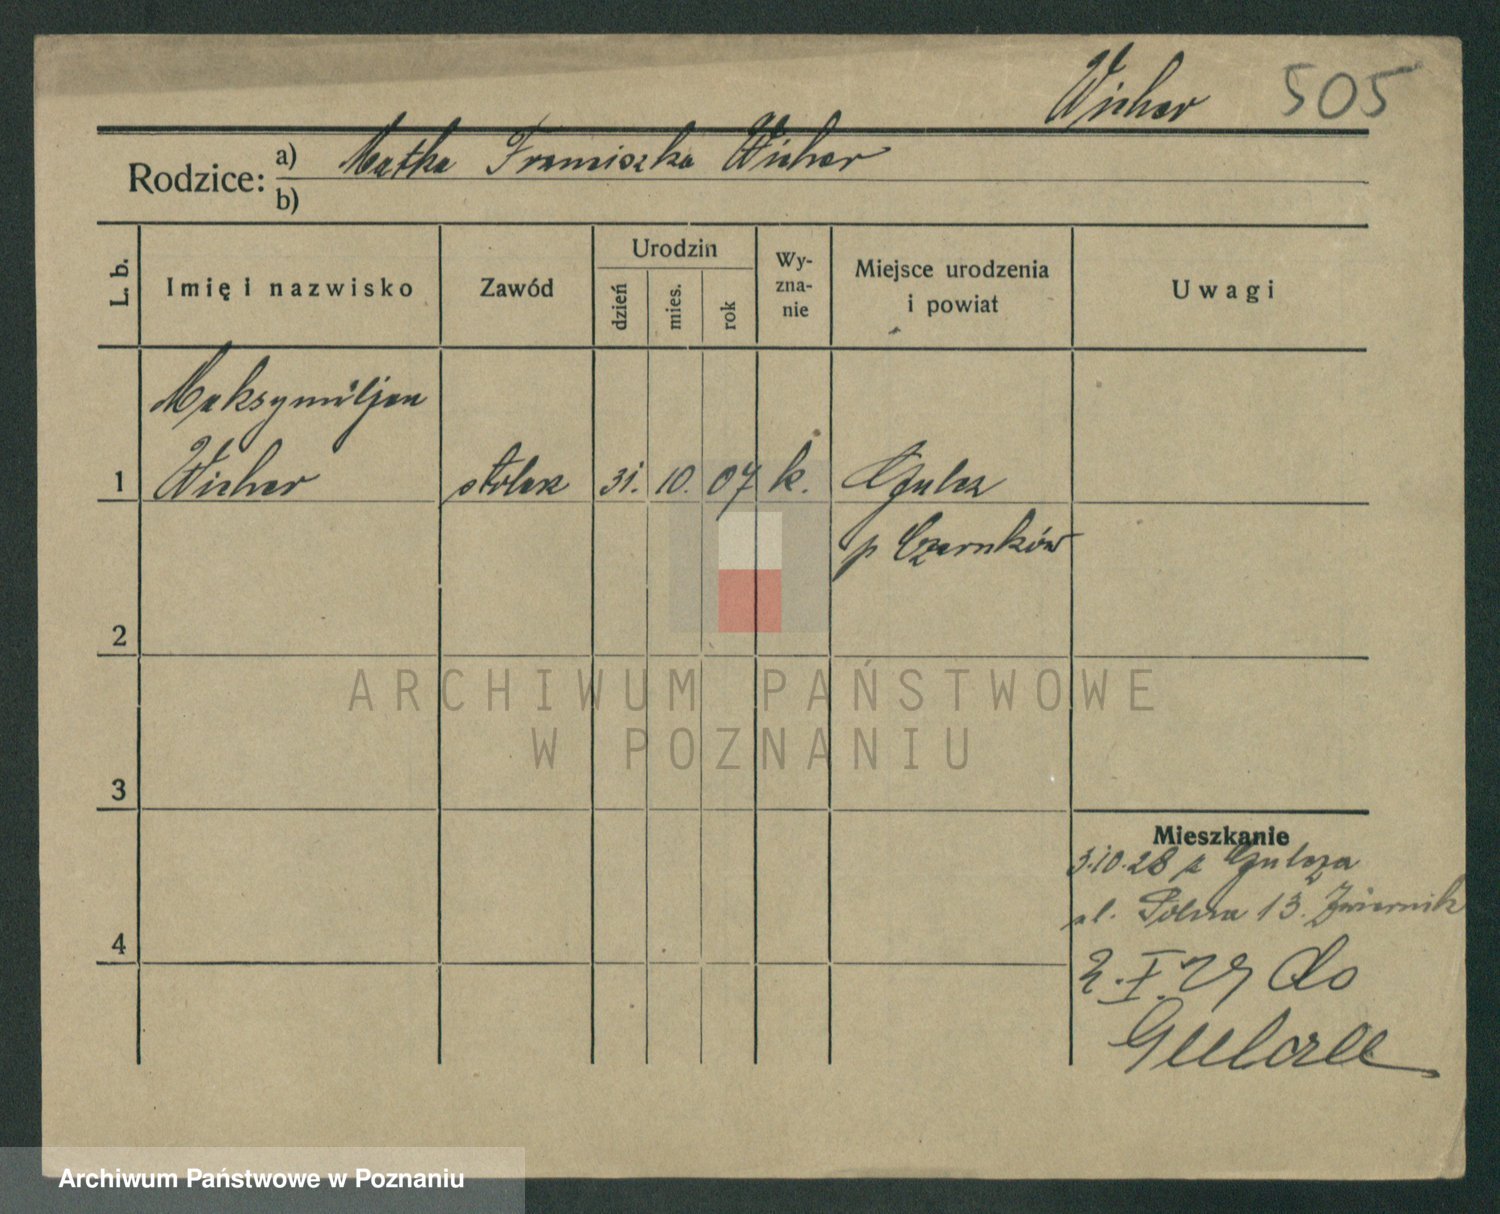 Wicher 505
Rodzice: a) Matka Franciszka Wicher
b)
L. b.
Imię i nazwisko
Zawód
Urodzin
dzień
mies.
rok
Wy-
zna-
nie
Miejsce urodzenia
i powiat
Uwagi
Maksymiljan
1 Wicher stolarz 31. 10. 07 k. Gulcz
p Czarnków
2
3
4
Mieszkanie
3.10.28 z Gulcza
ul. Polna 13.
2.I.29 do
Gulcza
ARCHIWUM PAŃSTWOWE
W POZNANIU
Archiwum Państwowe w Poznaniu